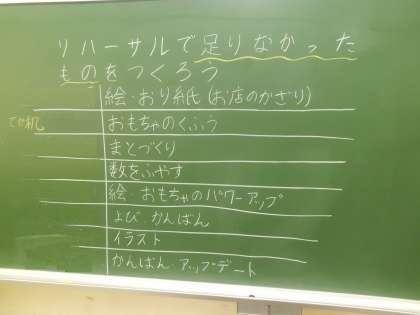 リハーサルで足りなかった
ものをつくろう
絵・おり紙(お店のかざり)
おもちゃのくふう
まとづくり
数をふやす
絵・おもちゃのパワーアップ
よび・かんばん
イラスト
かんばん・アップデート